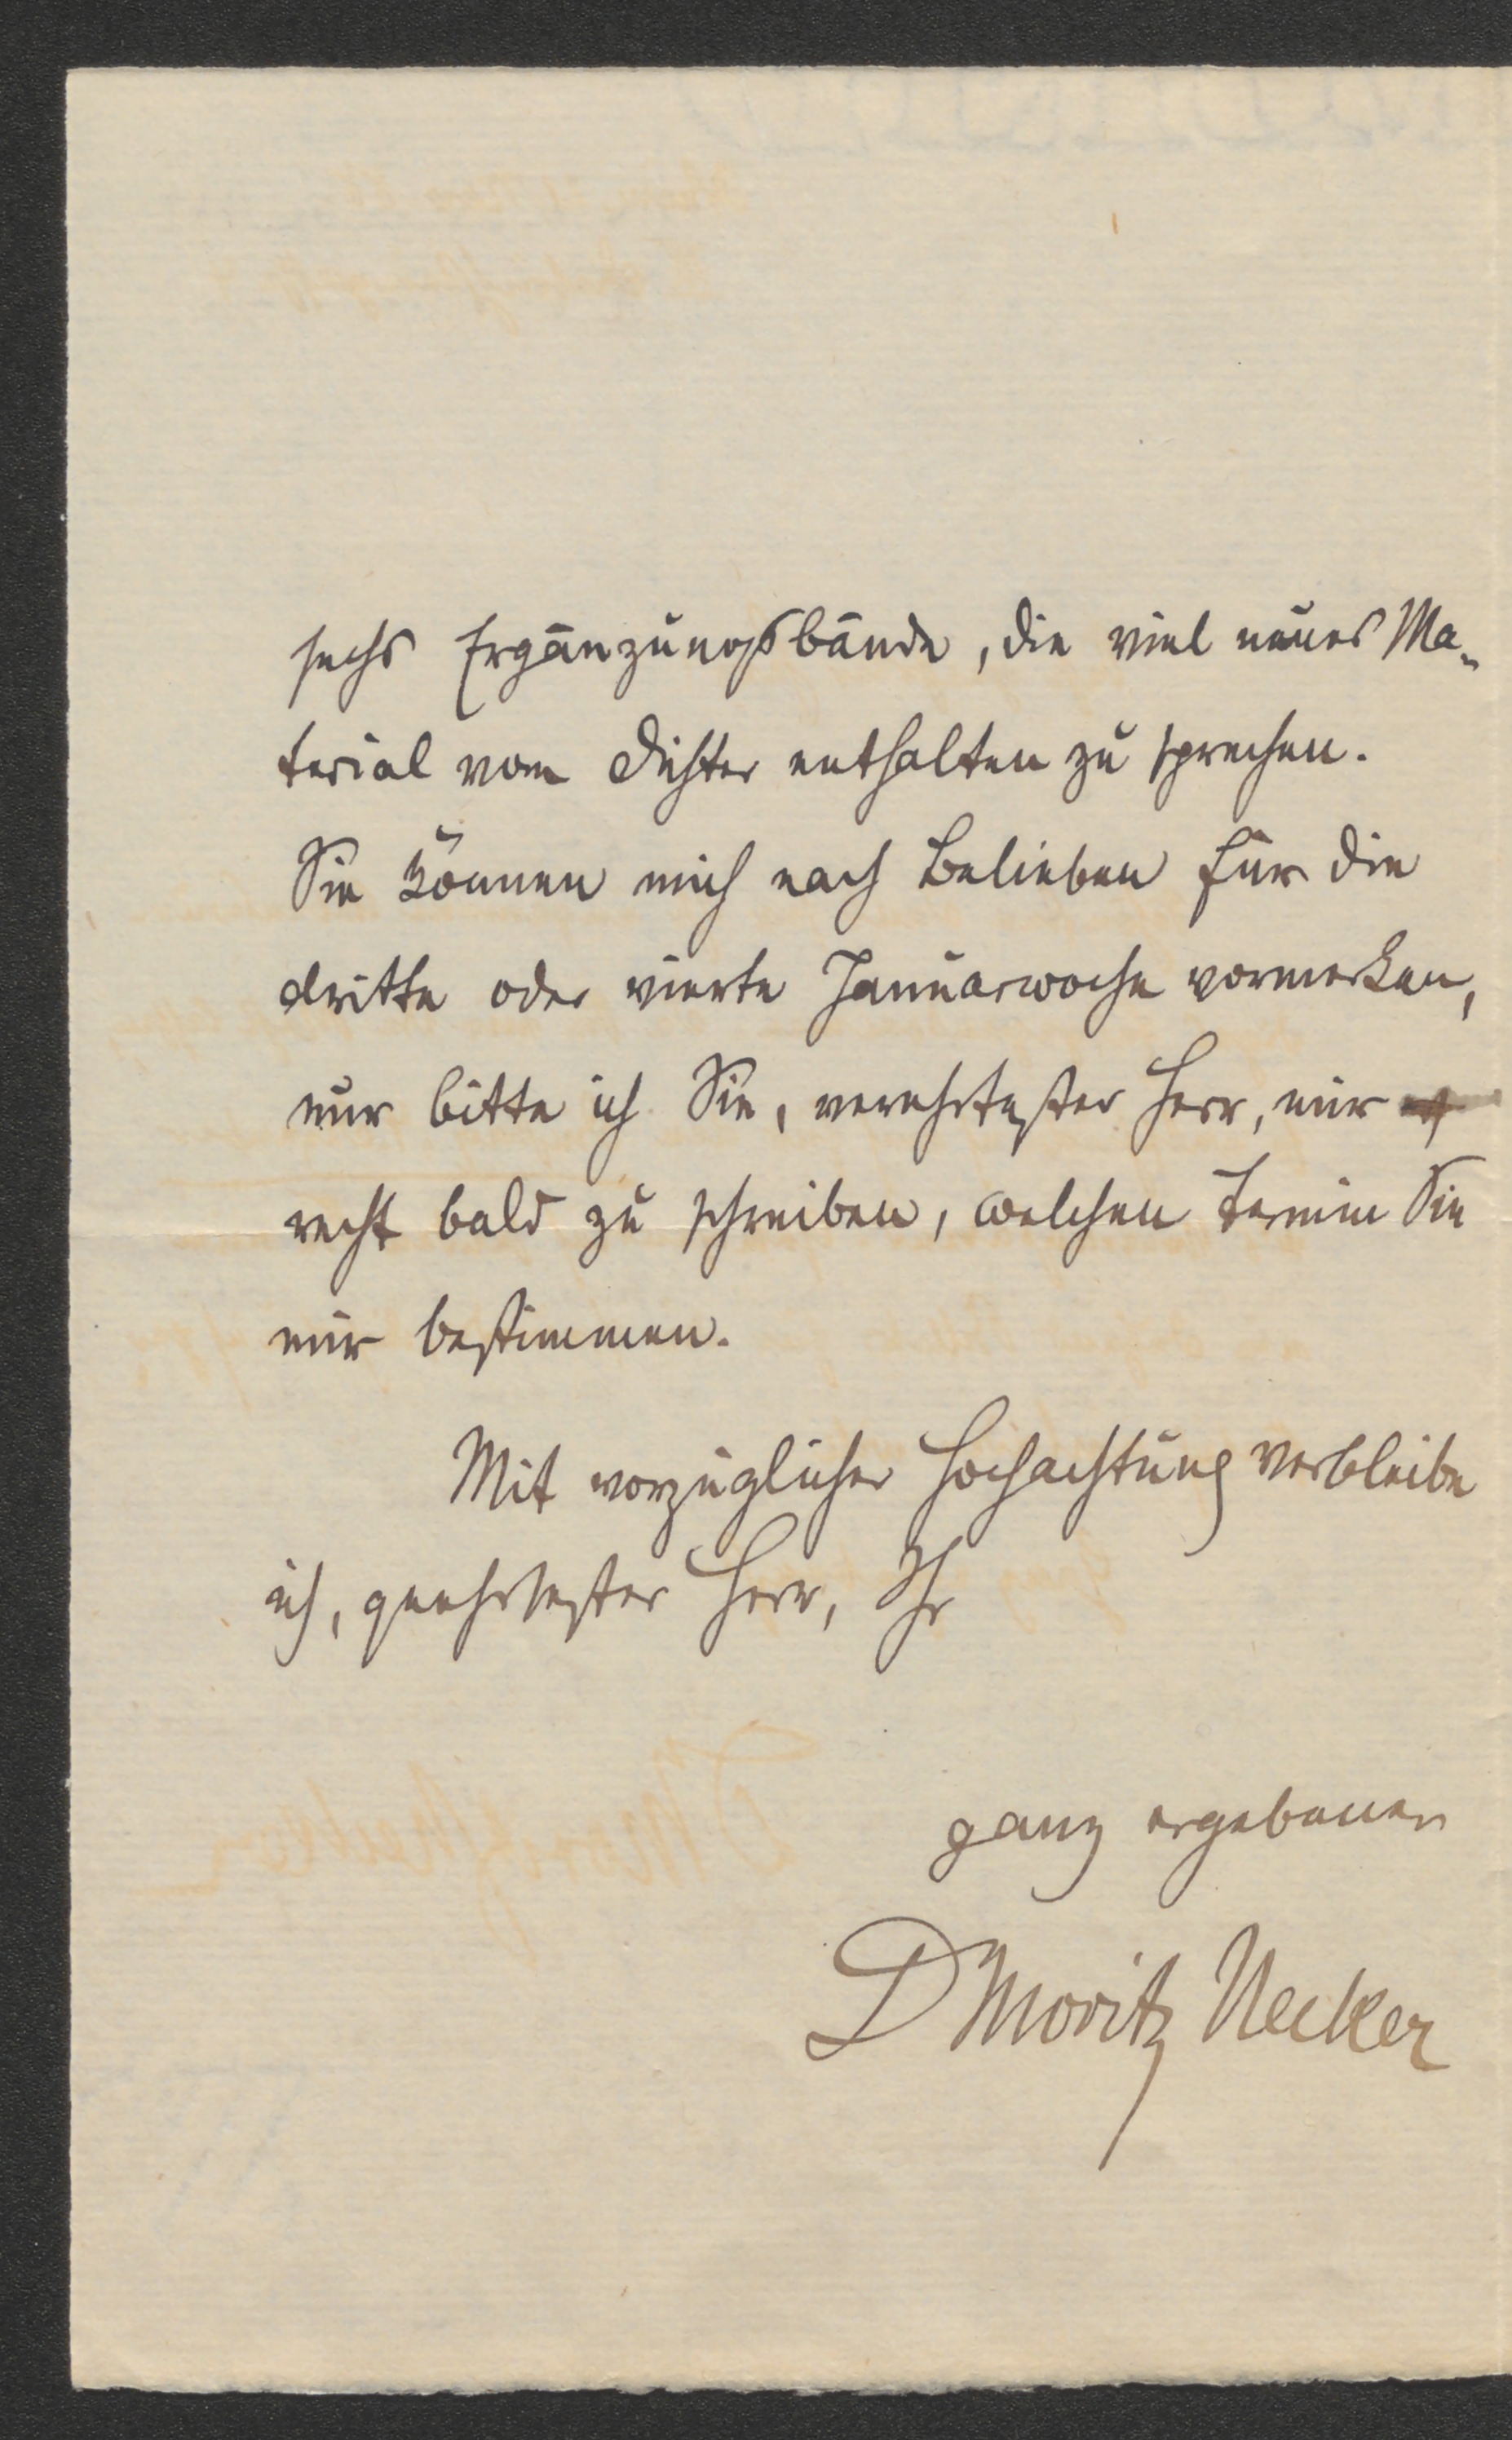 sechs Ergänzungsbände, die viel neues Ma-
terial vom Dichter enthalten zu sprechen.
Sie können mich nach Belieben für die
dritte oder vierte Januarwoche vormerken,
nur bitte ich Sie, verehrtester Herr, mir
recht bald zu schreiben, welchen Termin Sie
mir bestimmen.
Mit vorzüglicher Hochachtung verbleibe
ich, geehrtester Herr, Ihr
ganz ergebener
D Moritz Necker